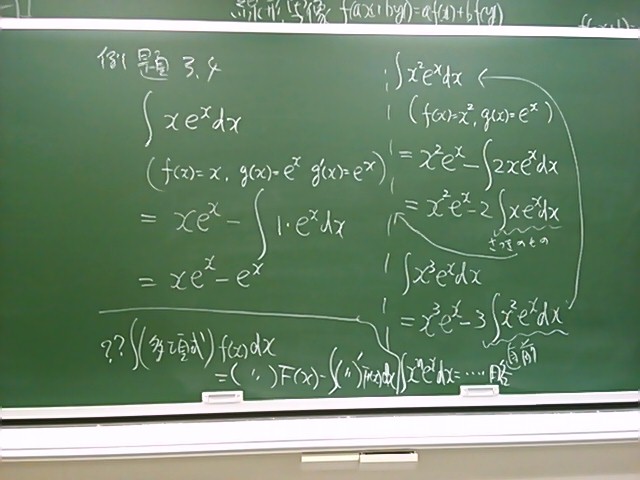 線形写像 f(ax+by)=af(x)+bf(y)
例題 3.4
∫xe^x dx
(f(x)=x, g(x)=e^x g'(x)=e^x)
= xe^x - ∫1·e^x dx
= xe^x - e^x
?? ∫(多項式) f(x)dx
= (〃)F(x) - ∫(〃)'F(x)dx
∫x²e^x dx
(f(x)=x², g(x)=e^x)
= x²e^x - ∫2xe^x dx
= x²e^x - 2∫xe^x dx
さっきのもの
∫x³e^x dx
= x³e^x - 3∫x²e^x dx
直前
∫xⁿe^x dx = ……